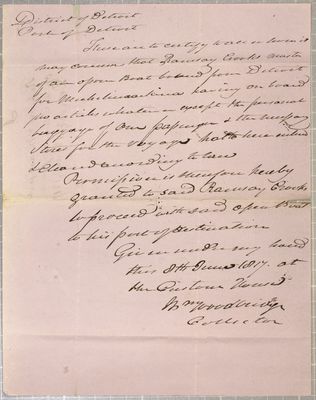 District of Detroit
Port of Detroit
These are to certify to all whom it
may concern that Ramsay Crooks master
of an open Boat bound from Detroit
for Michilimackinac having on board
no articles whatever except the personal
baggage of One passenger & the necessary
Stores for the voyage hath here entered
& cleared according to law
Permission is therefore hereby
granted to said Ramsay Crooks
to proceed with said open Boat
to his port of destination
Given under my hand
this 8th June 1817. at
the Custom House
Wm Woodbridge
Collector